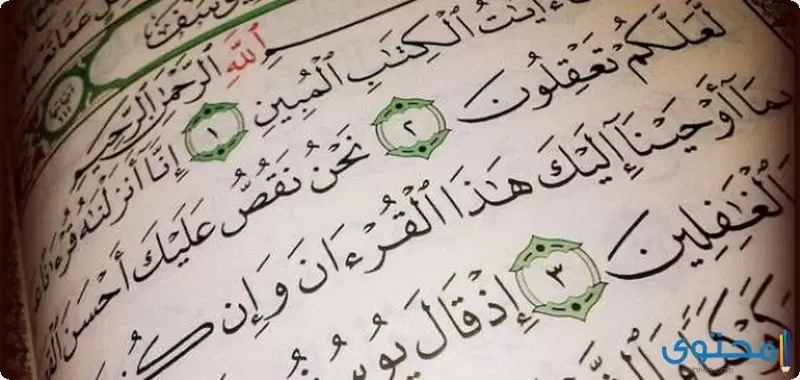 ٱللَّهِ ٱلرَّحْمَٰنِ ٱلرَّحِيمِ
ءَايَٰتُ ٱلْكِتَٰبِ ٱلْمُبِينِ ١ إِنَّآ أَنزَلْنَٰهُ قُرْءَٰنًا
لَّعَلَّكُمْ تَعْقِلُونَ ٢ نَحْنُ نَقُصُّ عَلَيْكَ أَحْسَنَ
بِمَآ أَوْحَيْنَآ إِلَيْكَ هَٰذَا ٱلْقُرْءَانَ وَإِن
ٱلْغَٰفِلِينَ ٣ إِذْ قَالَ يُوسُفُ
محتوى